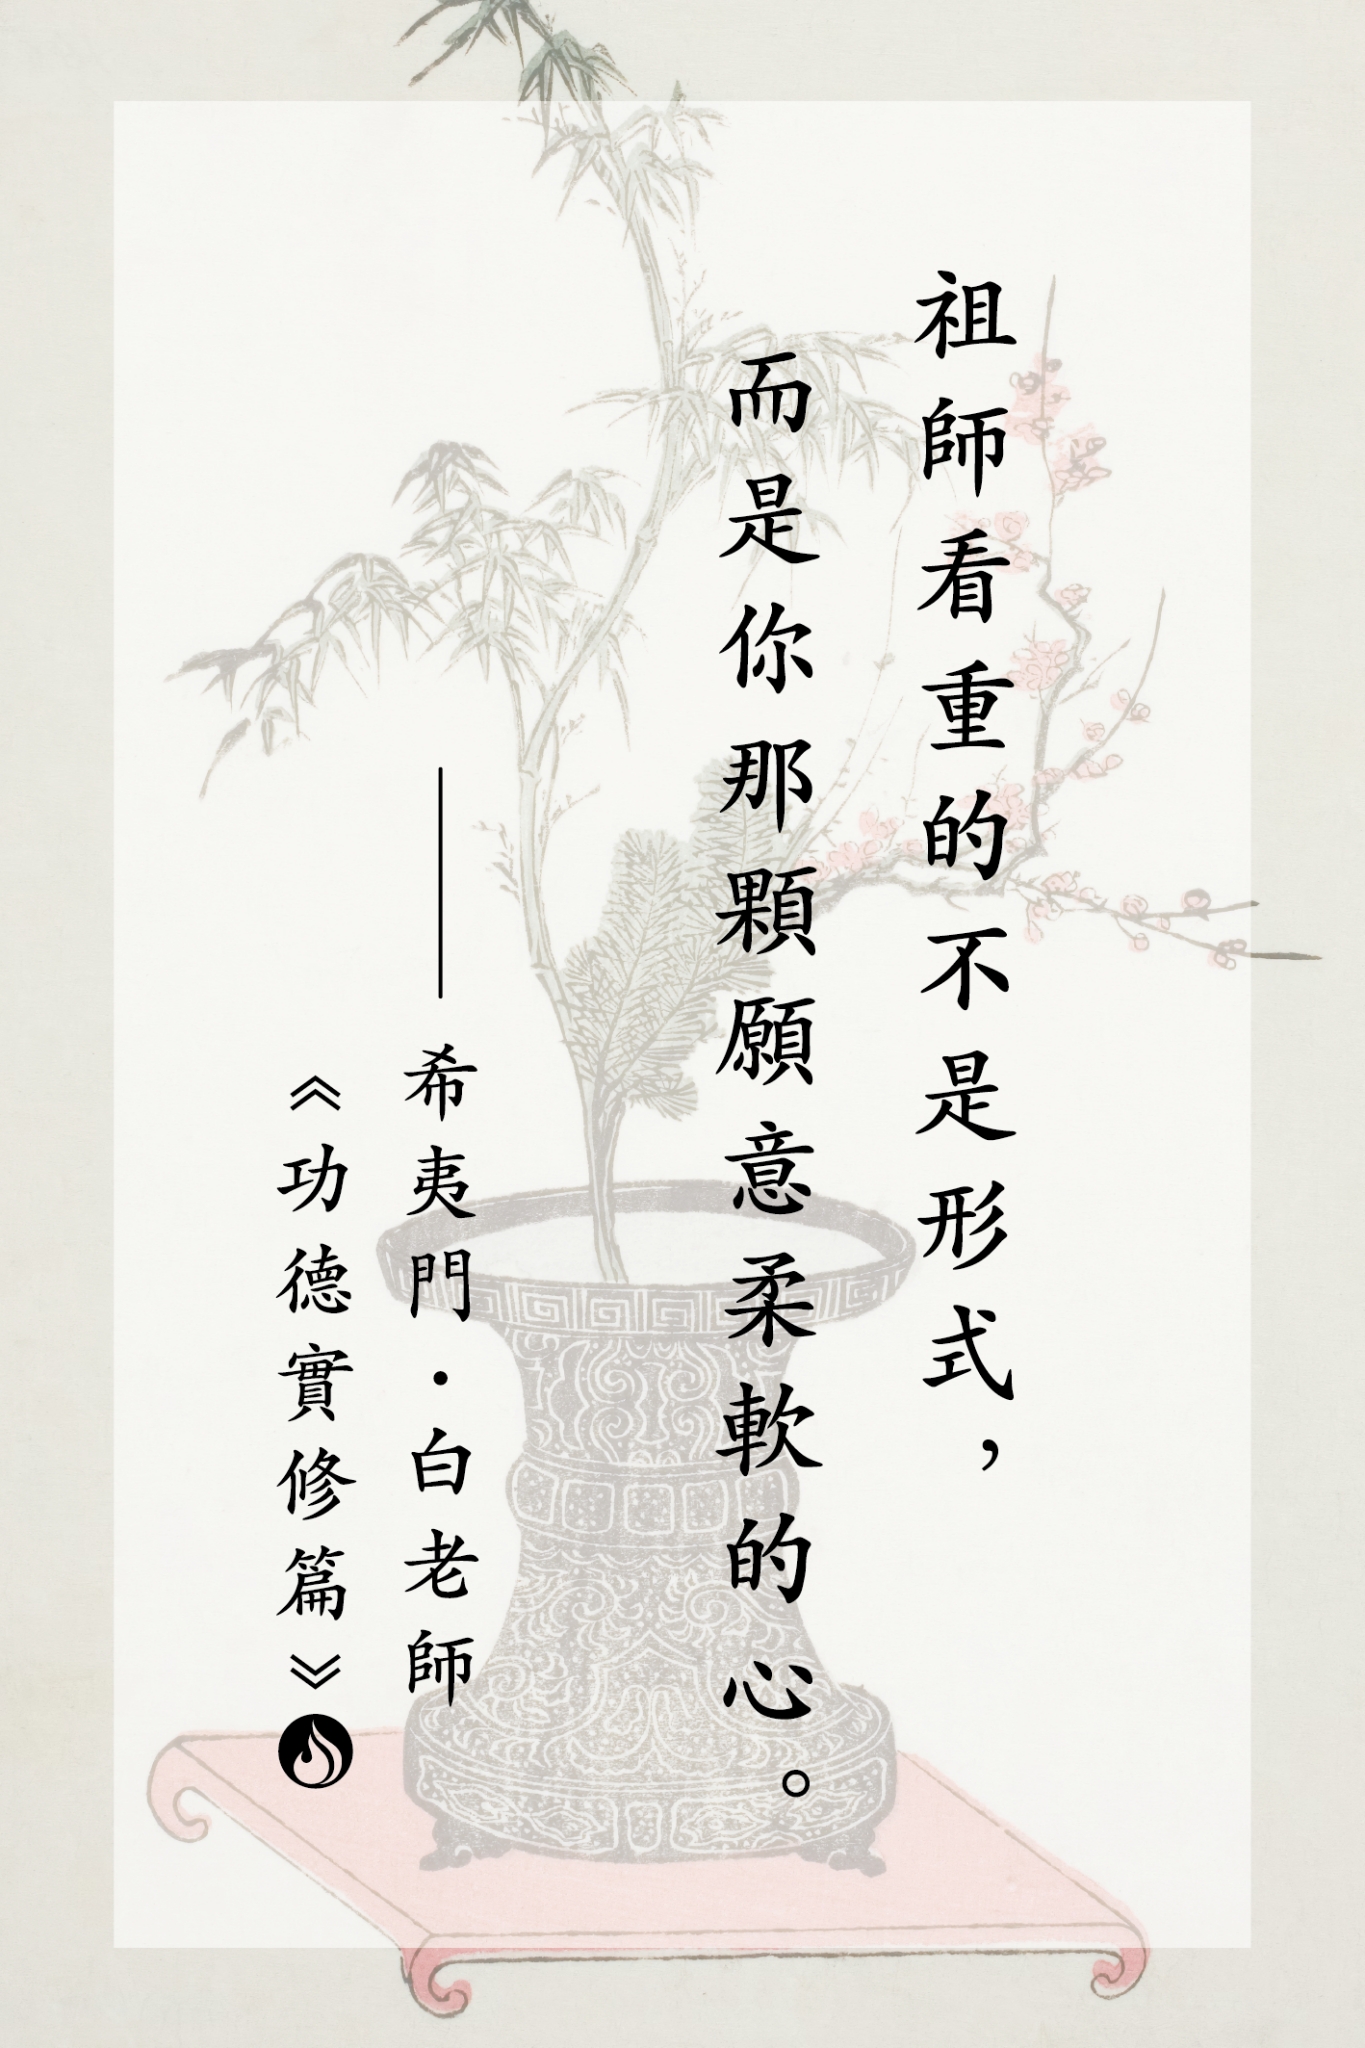 祖師看重的不是形式，
而是你那顆願意柔軟的心。
——希夷門·白老師
《功德實修篇》